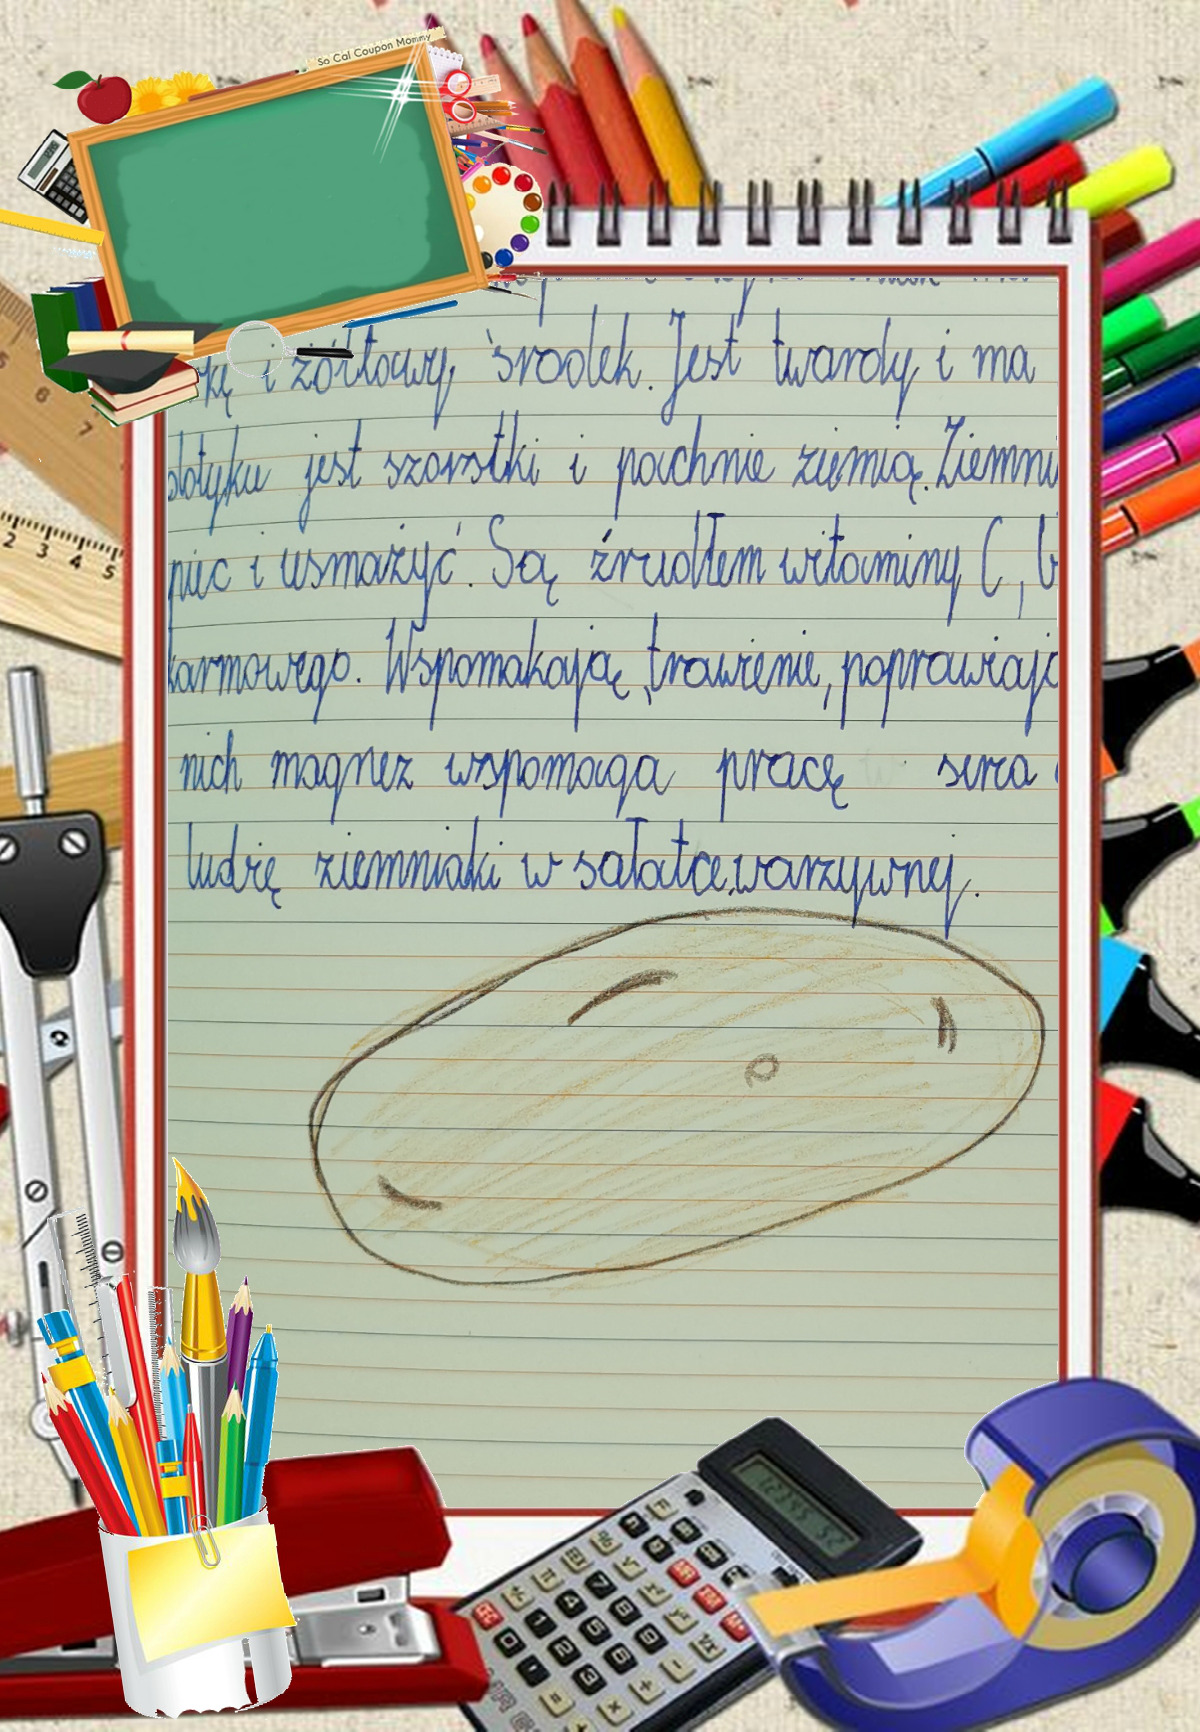 So Cal Coupon Mommy
i żółtowy środek. Jest twardy i ma
dotyku jest szorstki i pachnie ziemią. Ziemni
piec i usmażyć. Są źrudłem witaminy C, b
karmowego. Wspomakają trawienie, poprawiają
nich magnez wspomaga pracę serca
ludzię ziemniaki w sałatce warzywnej.